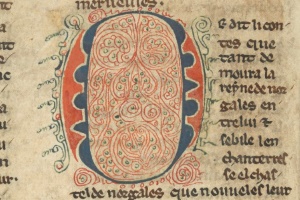 merueilles.
r dit li con
tes que
tant de
moura la
reyne de nor
gales en
tre lui &
sebile len
chanterre
se el chas
tel de norgales que nouueles leur